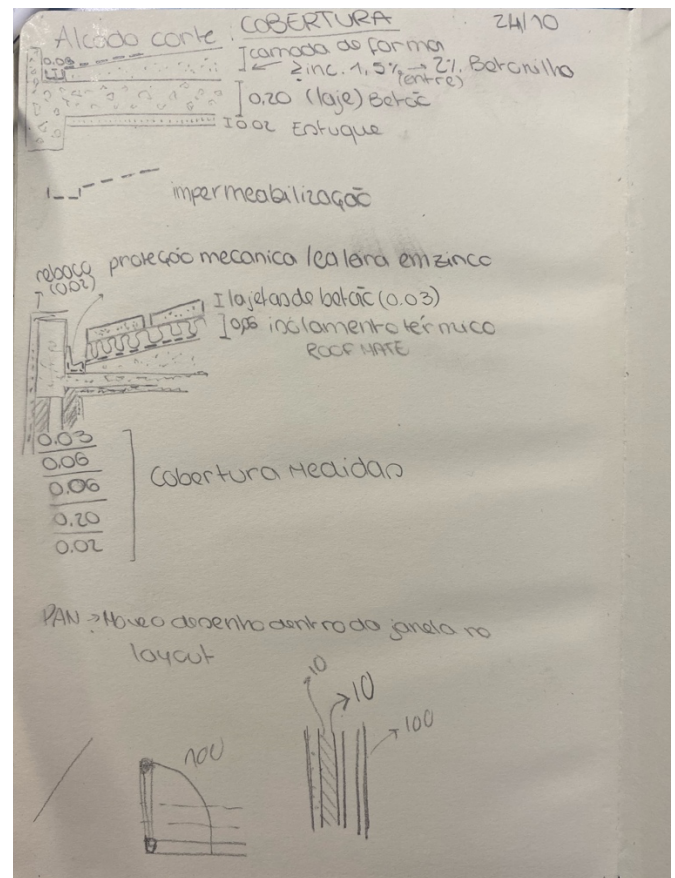 Alçado corte : COBERTURA 24/10
camada de forma
0.08
← inc. 1,5% → 2% Betonilha
(entre)
0,20 (laje) Betão
0.02 Estuque
impermeabilização
reboco proteção mecanica / caleira em zinco
(0.02)
lajetas de betão (0.03)
0,06 isolamento térmico
ROOF MATE
0.03
0.06
0.06
0.20
0.02
Cobertura Medidas
PAN → Move o desenho dentro da janela no
layout
10
10
100
100